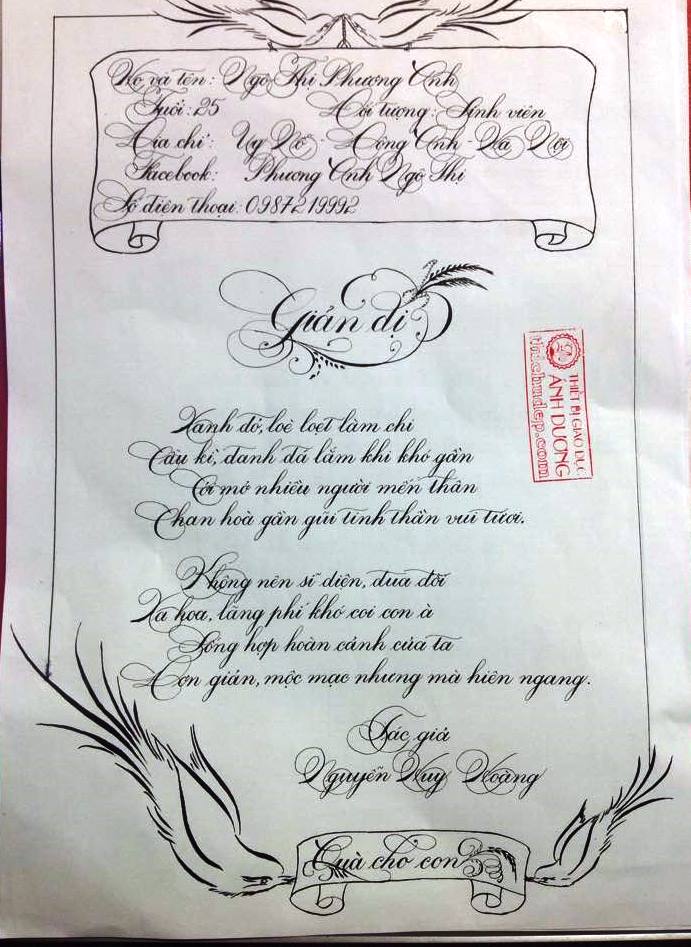 Họ và tên: Ngô Thị Phương Anh
Tuổi: 25 Đối tượng: Sinh viên
Địa chỉ: Uy Nỗ - Đông Anh - Hà Nội
Facebook: Phương Anh Ngô Thị
Số điện thoại: 0987219992
Giản dị
THIẾT BỊ GIÁO DỤC
ÁNH DƯƠNG
thichudep.com
Xanh đỏ, loè loẹt làm chi
Cầu kì, đanh đá lắm khi khó gần
Cởi mở nhiều người mến thân
Chan hoà gần gũi tinh thần vui tươi.
Không nên sĩ diện, đua đòi
Xa hoa, lãng phí khó coi con à
Sống hợp hoàn cảnh của ta
Đơn giản, mộc mạc nhưng mà hiên ngang.
Tác giả
Nguyễn Huy Hoàng
Quà cho con